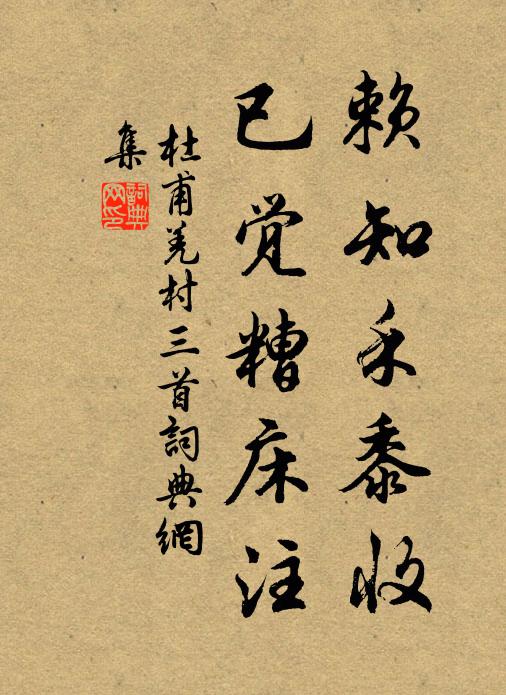 赖知禾黍收
已觉糟床注
杜甫羌村三首詞典網
集
詞典网印